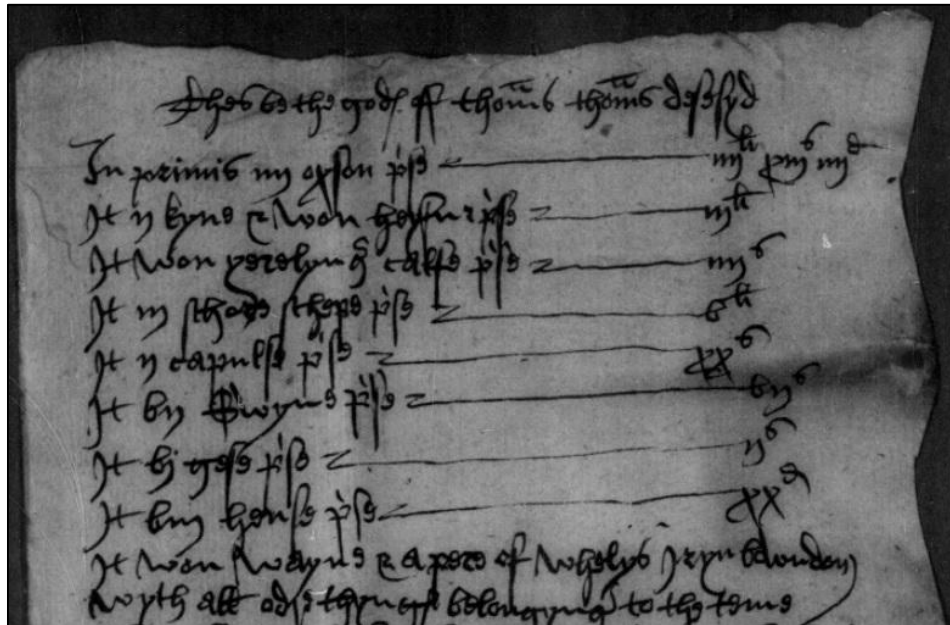 Thes be the godꝭ off thomas thomas desesyd
In primis iiij oxson p'se iiijli xiijs iiijd
It ij kyne & won heyfur p'se iijli
It won yerelyng calfe p'se iiijs
It iij schore schepe p'se vli
It ij capulse p'se xxs
It vij swyne p'se vijs
It vj gese p'se ijs
It viij hense p'se xxd
It won wayne & a pere of whelys Iryn bwondon
wyth all odr thyngꝭ belongyng to the teme